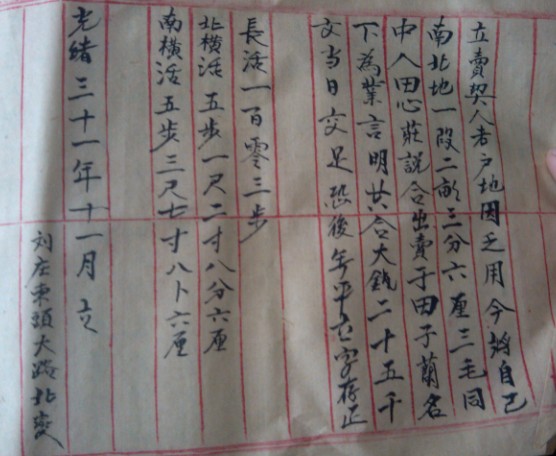 立賣契人者戶地因乏用今將自己
南北地一段二畝三分六厘三毛同
中人田心莊説合出賣于田子蘭名
下為業言明共合大錢二十五千
文当日交足恐後無凴立字存正
長活一百零三步
北横活五步一尺二寸八分六厘
南横活五步三尺七寸八卜六厘
光緒三十一年十一月立
刘庄東頭大路北变